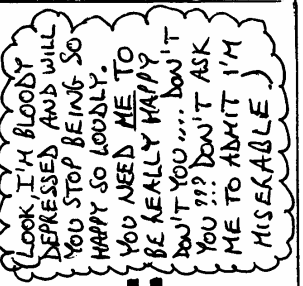 LOOK, I'M BLOODY
DEPRESSED AND WILL
YOU STOP BEING SO
HAPPY SO LOUDLY.
YOU NEED ME TO
BE REALLY HAPPY
DON'T YOU .... DON'T
YOU ??? DON'T ASK
ME TO ADMIT I'M
MISERABLE.)